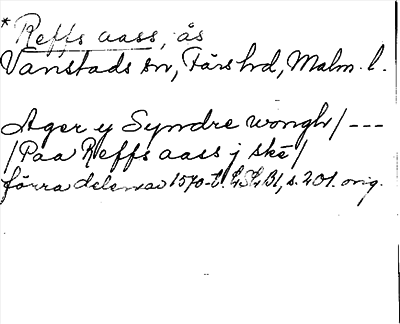 * Reffs aass, ås
Vanstads sn, Färs hrd, Malm. l.
Ager y Syndre wongh / ---
/ Paa Reffs aass j skē /
förra delen av 1570-t. LSLB1, s. 201. orig.